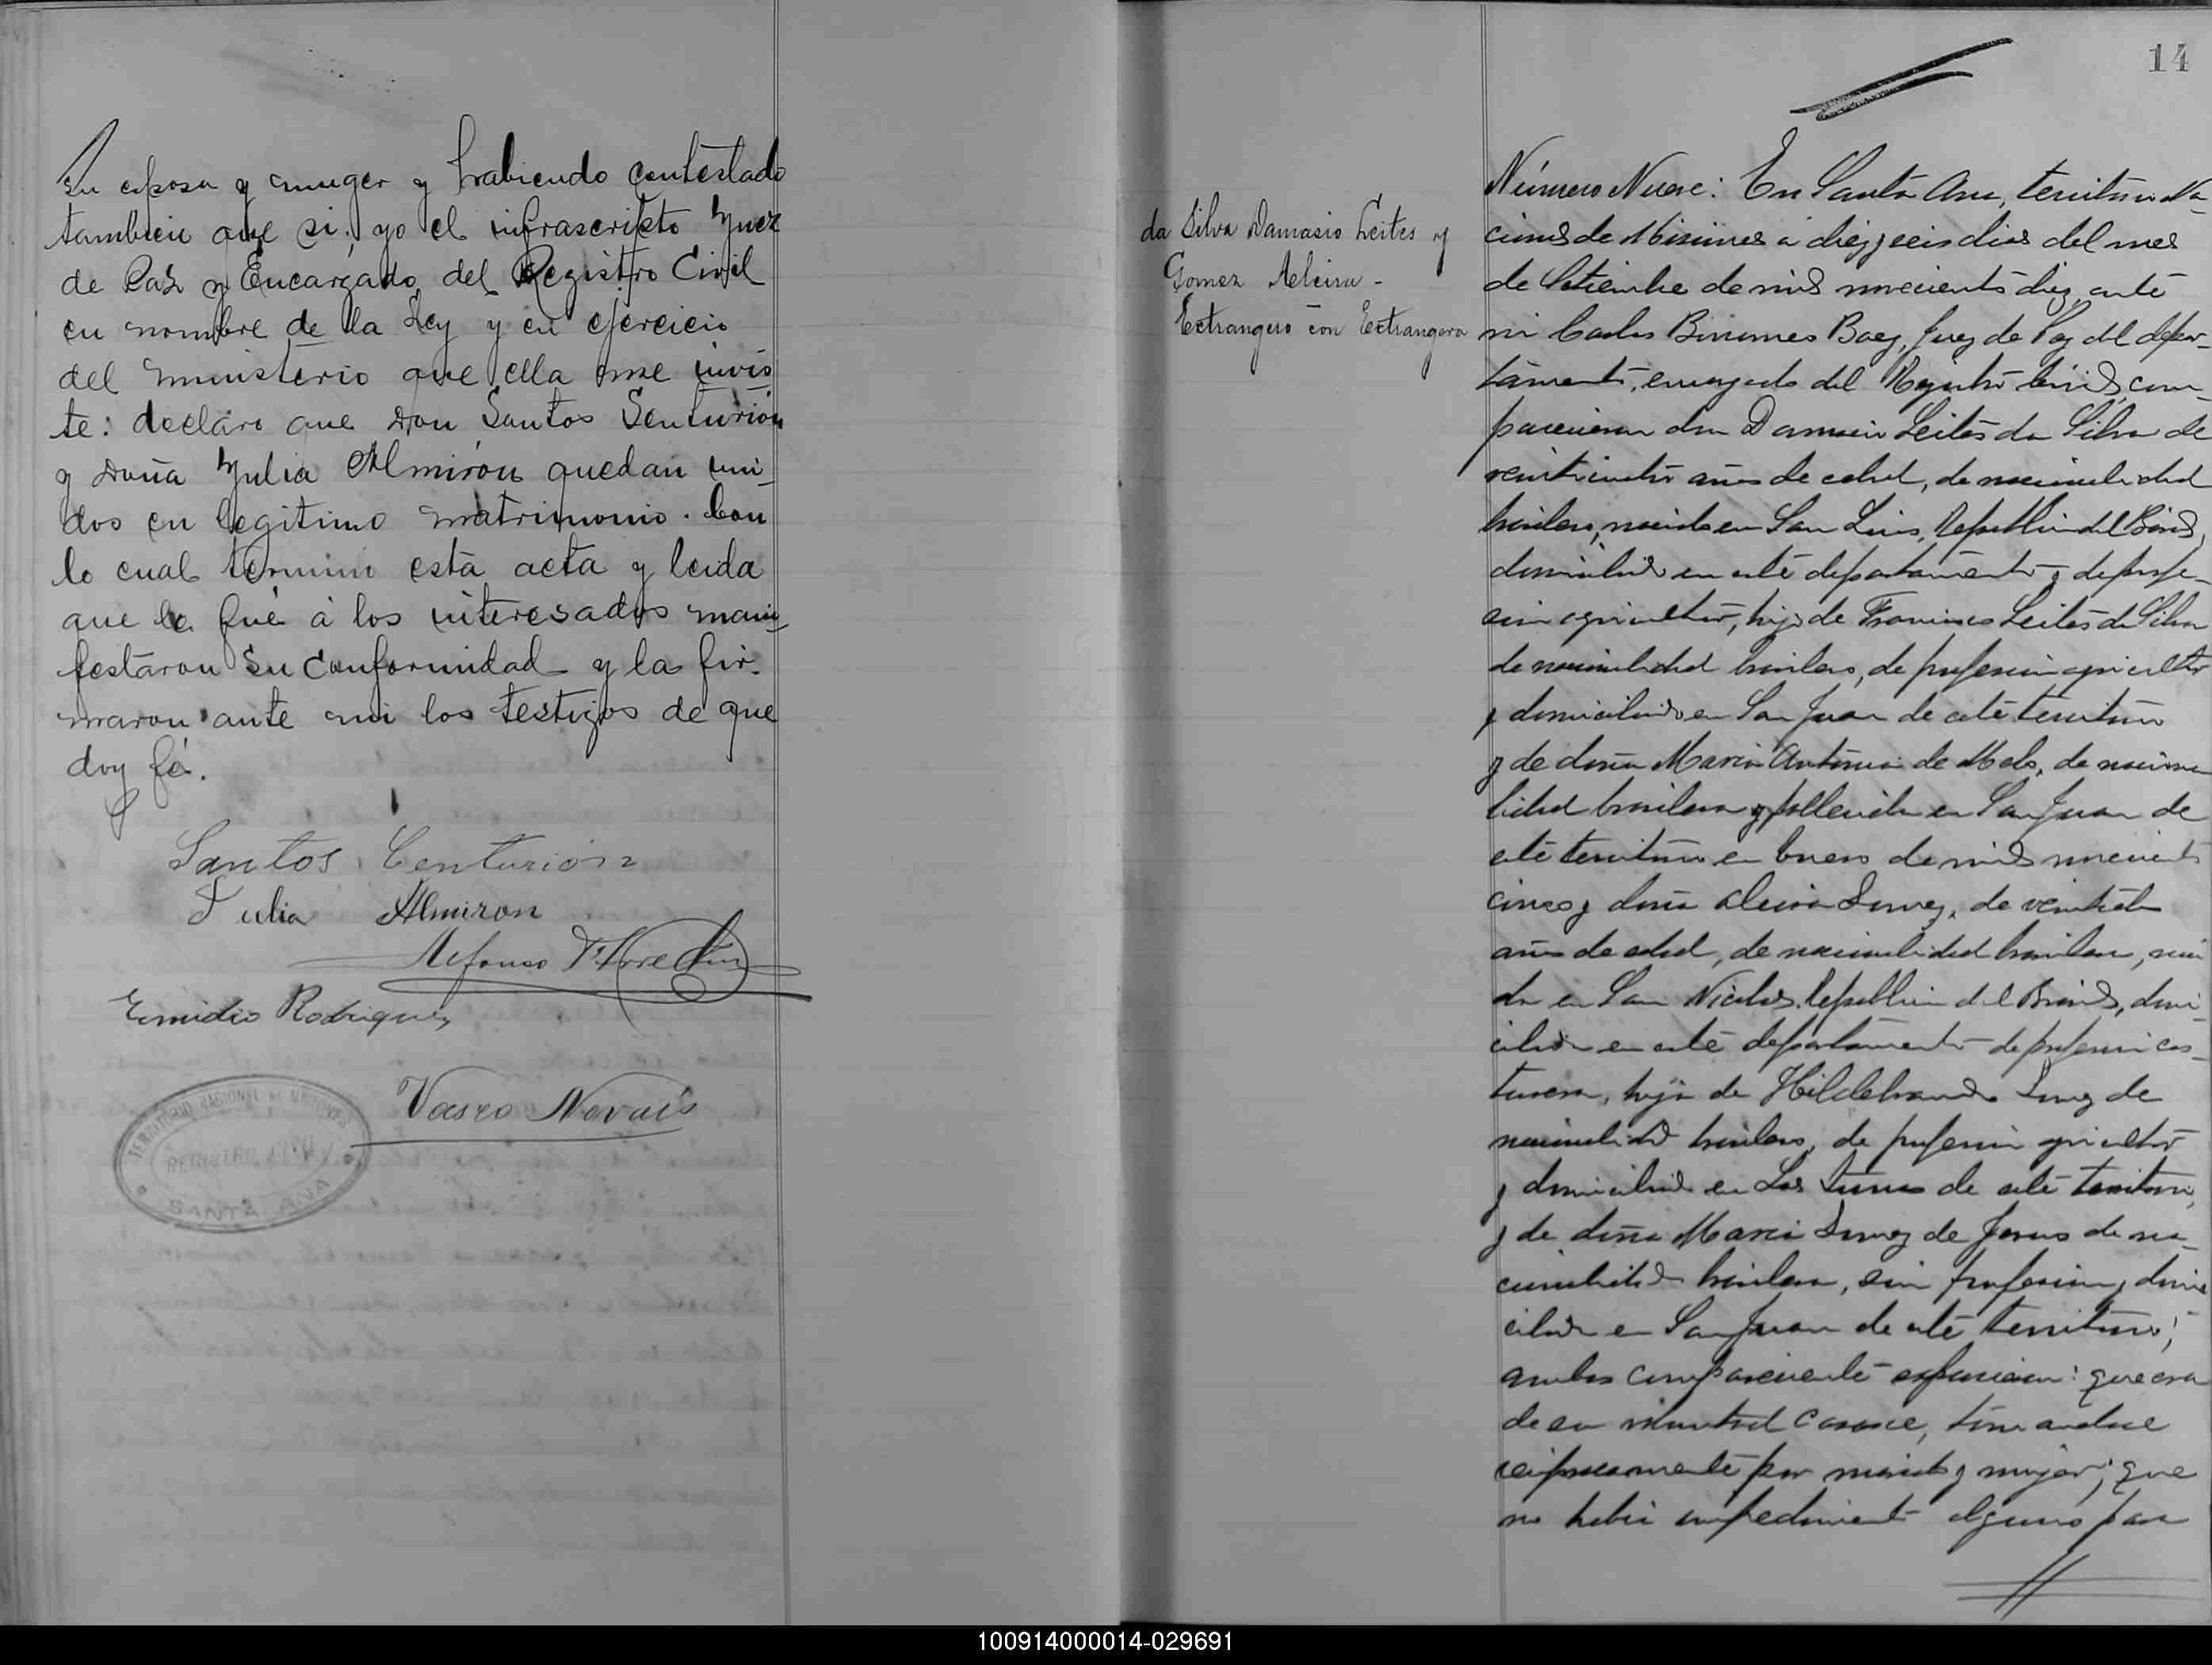 su esposa y muger y habiendo contestado
tambien que si; yo el infrascripto Juez
de Paz y Encargado del Registro Civil
en nombre de la Ley y en ejercicio
del ministerio que ella me invis
te: declaro que Don Santos Senturión
y Doña Julia Almirón quedan uni-
dos en legitimo matrimonio. Con
lo cual termino esta acta y leida
que le fué á los interesados mani-
festaron su conformidad y la fir-
maron ante mi los testigos de que
doy fé.
Santos Centurión
Julia Almiron
Emidio Rodriguez
Vasco Novais
TERRITORIO NACIONAL DE MISIONES
REGISTRO CIVIL
SANTA ANA
14
da Silva Damasio Leites y
Gomez Alcira -
Extrangero con Extrangera
Número Nueve: En Santa Ana, territorio Na-
cional de Misiones a diez y seis dias del mes
de Setiembre de mil novecientos diez, ante
mi Carlos Baez, Juez de Paz del depar-
tamento, encargado del Registro Civil, com-
parecieron don Damasio Leites da Silva de
veinticuatro años de edad, de nacionalidad
brasilera, nacido en San Luis, Republica del Brasil,
domiciliado en este departamento, de profe-
sion agricultor, hijo de Francisco Leites da Silva
de nacionalidad brasilero, de profesion agricultor
y domiciliado en San Juan de este territorio
y de doña Maria Antonia de Melo, de naciona
lidad brasilera y fallecida en San Juan de
este territorio en Enero de mil novecientos
cinco y doña Alcira de
años de edad, de nacionalidad brasilera, naci
da en San Nicolas, Republica del Brasil, domi-
ciliada en este departamento de profesion cos-
turera, hija de Hildebrando de
nacionalidad brasilero, de profesion agricultor
y domiciliado en Las Tunas de este territorio,
y de doña Maria de Jesus de na-
cionalidad brasilera, sin profesion, domi
ciliada en San Juan de este territorio;
ambos comparecientes expusieron: que era
de su voluntad casarse, tomandose
reciprocamente por marido y mujer; que
no habia impedimento alguno para
100914000014-029691